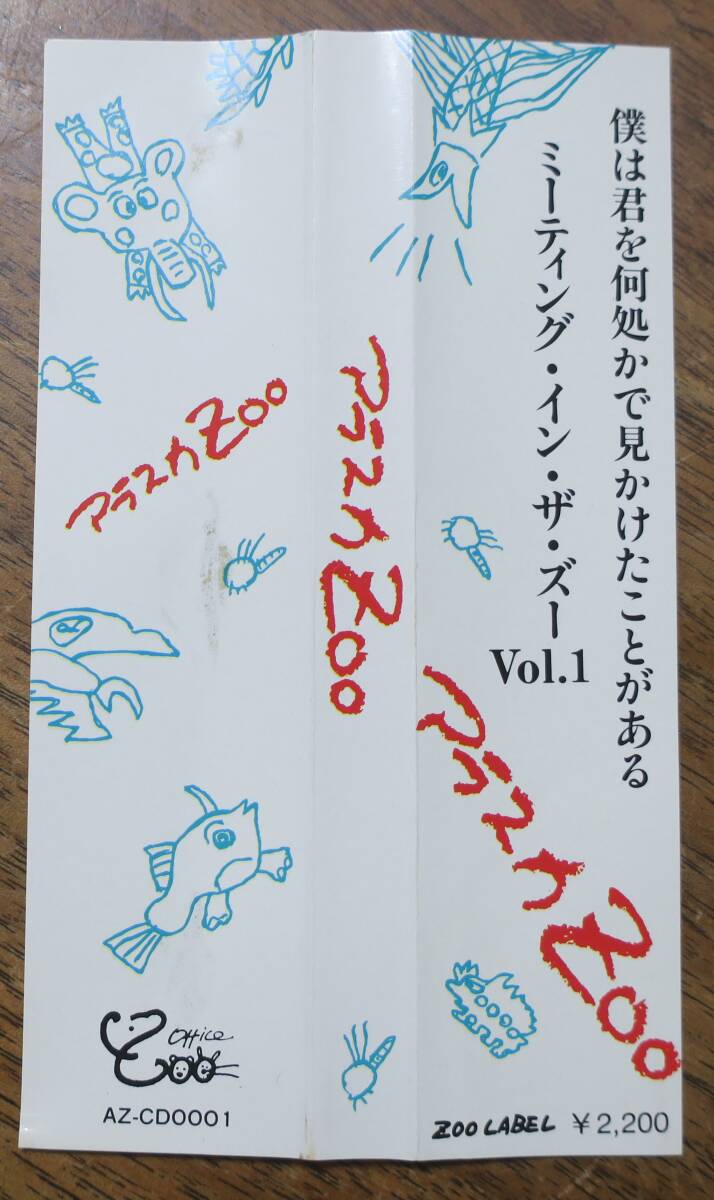 僕は君を何処かで見かけたことがある
ミーティング・イン・ザ・ズー
Vol.1
アラスカZoo
ZOO LABEL ¥2,200
アラスカZoo
アラスカZoo
Office
Zoo
AZ-CD0001